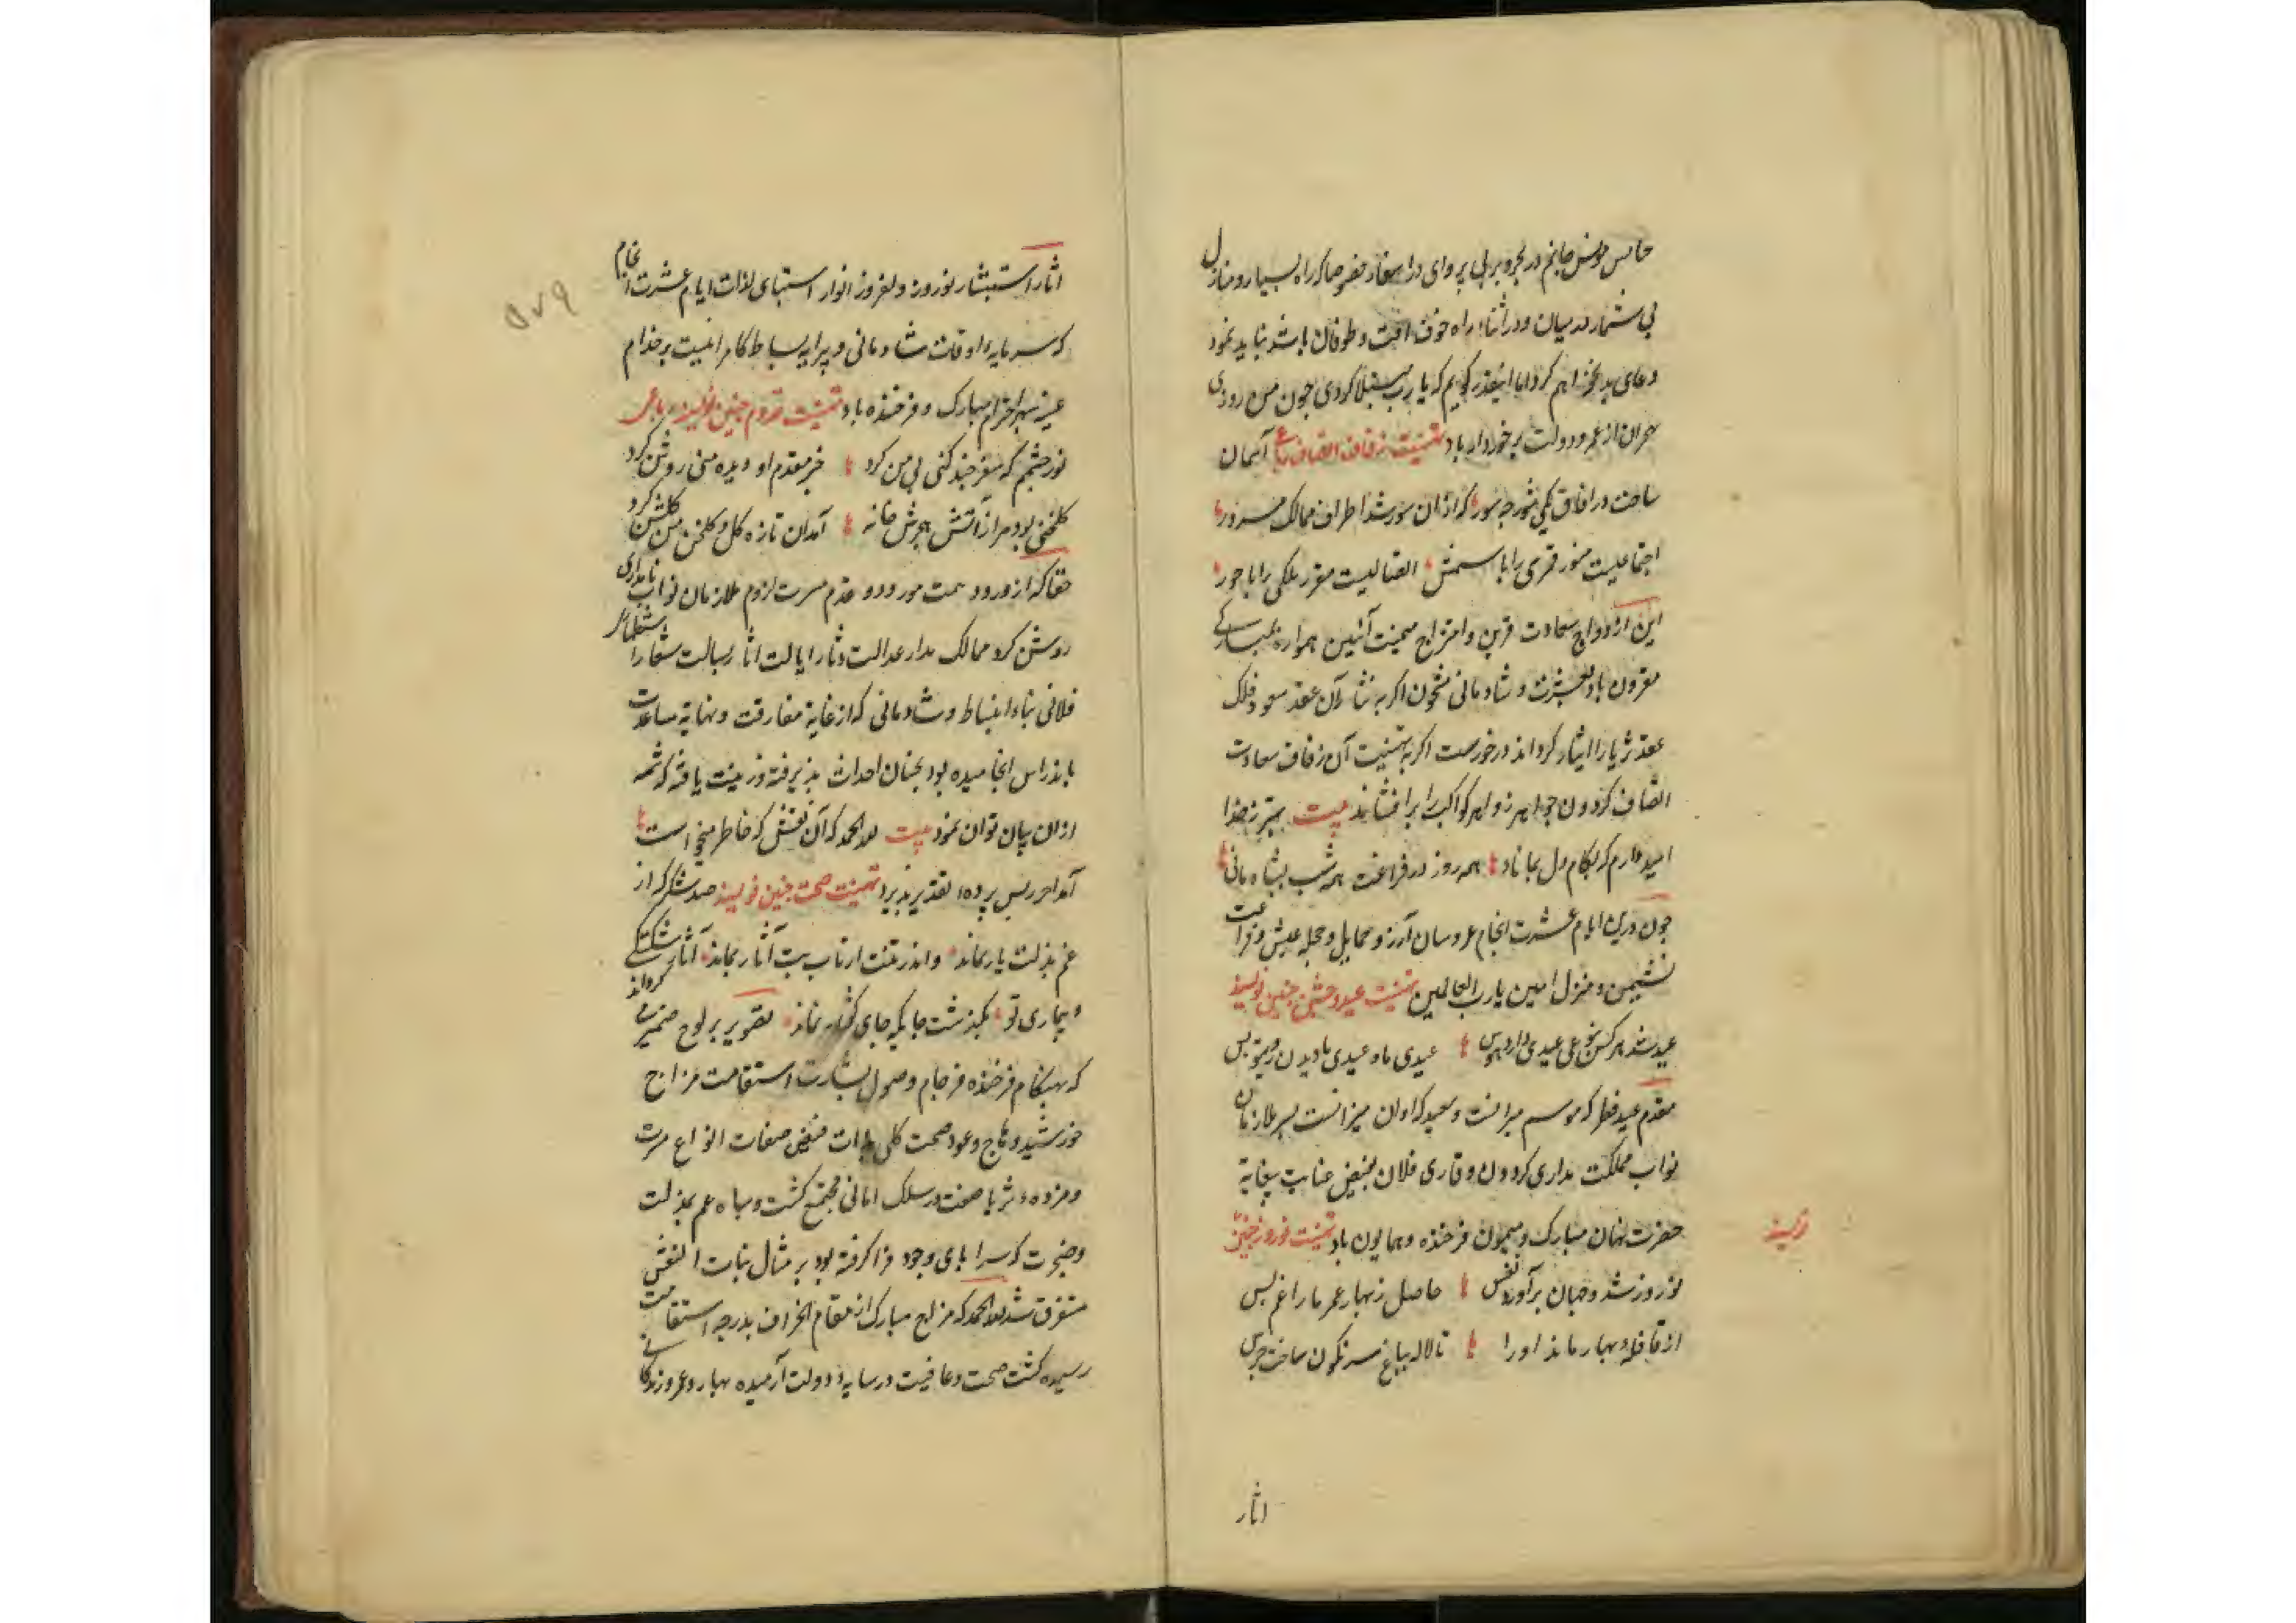 جانم در بحر و بر بی پروای در اسفار خصوصا که راه بسیار و منازل
بی شمار در میان و در اثناء راه خوف افت و طوفان باشد نباید نمود
دعای بد نخواهم کرد اما اینقدر گویم که یا رب مبتلا گردی چون من روزی
از عمر و دولت برخوردار باد تهنیت زفاف آسمان
ساخت در افاق یکی سور چه سور که ازان سور شد اطراف ممالک مسرور
اجتماعیست منور قمری را با شمس اتصالیست مقرر ملکی را با حور
این ازدواج سعادت قرین و امتزاج میمنت آئین همواره بمبارکی
مقرون باد بعشرت و شادمانی مشحون اگر به نثار آن عقد سعود فلک
عقد ثریا را ایثار کرداند درخورست اگر به تهنیت آن زفاف سعادت
اتصاف گردون جواهر زواهر کواکب را برافشاند بیت بتر ز خدا
امیدوارم که بکام دل بماناد همه روز در فراغت همه شب بشادمانی
چون درین ایام عشرت انجام عروسان آرزو حمایل و حجله عیش و فراغت
نشیمن و منزل امین یا رب العالمین تهنیت عید و جشن چنین نویسد
عید شد هر کس عیدی دارد هوس عیدی ما دیدن روی تو بس
مقدم عید فطر که موسم و سعید که اوان میزانست بر ملازمان
نواب مملکت مداری گردون وقاری فلان بفیض عنایت بیغایة
حضرت منان مبارک و میمون فرخنده و همایون باد تهنیت نوروز چنین
نویسد
نوروز شد و جهان برآورد نفس حاصل ز بهار عمر ما را غم بس
از قافله بهار ماند اورا تا لاله بباغ سرنگون ساخت جرس
اثار
۵۷۹
اثار استبشار نوروز دلفروز انوار لذات ایام عشرت انجام
که سرمایه اوقات شادمانی و پیرایه بساط کامرانیست بر خدام
مبارک و فرخنده باد تهنیت قدوم چنین نویسد رباعی
نور چشمم که سفر چند گهی بی من کرد خبر مقدم او دیده من روشن کرد
گلخنی بود مرا ز آتش هجرش خانه آمد ان تازه گل و گلخن من گلشن کرد
حقا که از ورود و قدم مسرت لزوم ملازمان نواب نامداری
روشن کرد ممالک مدار عدالت دثار ایالت اثار بسالت شعار
فلانی بناء انبساط و شادمانی که از غایة مفارقت و نهایة مباعدت
باندراس انجامیده بود بچنان احداث پذیرفته و زینت یافته که شمه
ازان بیان توان نمود بیت لله الحمد که آن نقش که خاطر میخواست
آمد اخر ز پس پرده تقدیر پدید تهنیت صحت چنین نویسد صد شکر که از
غم بذلت یار نماند و اندر تنت از تاب تب آثار نماند آثار شکستگی
و بیماری تو بگذشت چنانکه جای گفتار نماند تصویر بر لوح ضمیر میگرداند
که بهنگام فرخنده فرجام وصول بشارت استقامت مزاج
خورشید و عود صحت کلی صفات انواع مسرت
و مژده ثریا صفت در سلک امانی مجتمع گشت و سپاه غم بذلت
و ضجرت که سراپای وجود فرا گرفته بود بر مثال بنات النعش
متفرق شد لله الحمد که مزاج مبارک از مقام انحراف بدرجه استقامت
رسیده گشت صحت و عافیت در سایه دولت آرمیده بهار عمر و زندگانی